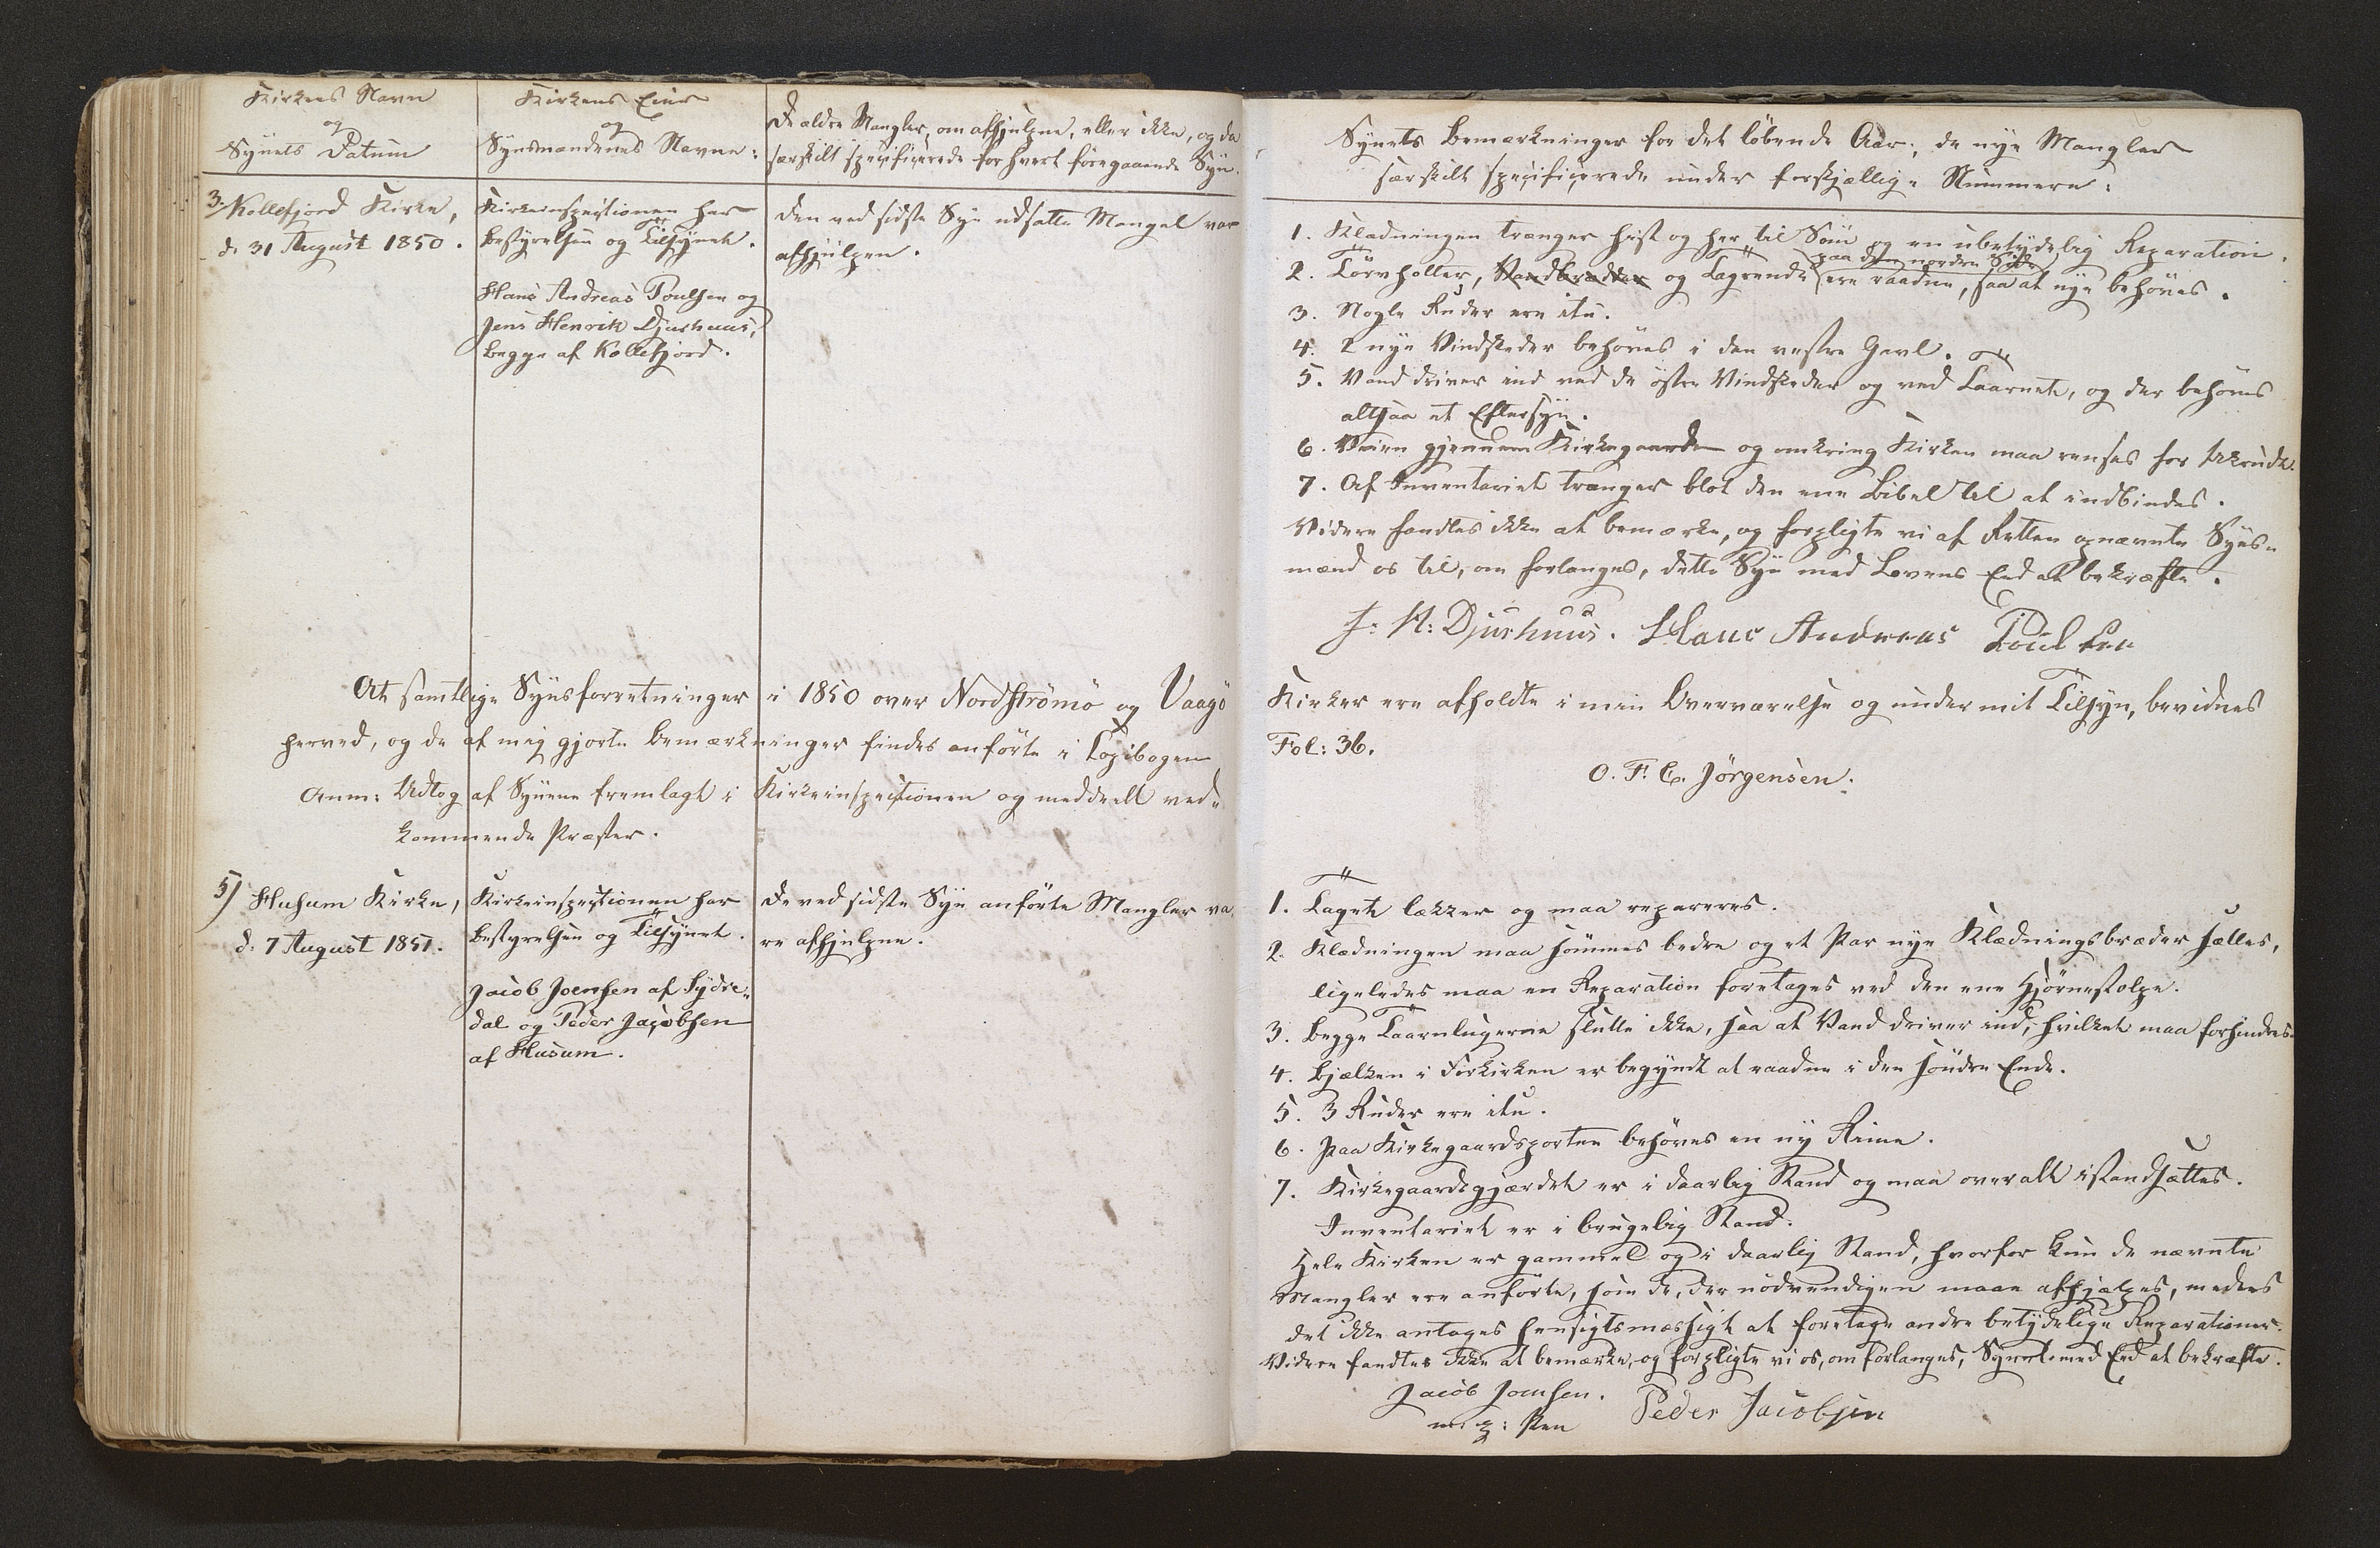 Kirkens Navn
og
Synets Datum
Kirkens Eier
og
Synsmændenes Navne:
De ældre Mangler, om afhjulpne, eller ikke, og da
særskilt specificerede for hvert foregaaende Syn.
3. Kollefjord Kirke,
d. 31 August 1850.
Kirkeinspectionen har
Bestyrelsen og Tilsynet.
Hans Andreas Poulsen og
Jens Henrik Djurhuus,
begge af Kollefjord.
Den ved sidste Syn udsatte Mangel var
afhjulpen.
At samtlige Synsforretninger i 1850 over Nordströmö og Vaagö
herved, og de af mig gjorte Bemærkninger findes anförte i Copibogen
Anm: Udtog af Synene fremlagt i Kirkeinspectionen og meddeelt ved-
kommende Præster.
5) Husum Kirke,
d. 7 August 1851.
Kirkeinspectionen har
Bestyrelsen og Tilsynet.
Jacob Joensen af Sydre-
dal og Peder Jacobsen
af Husum.
De ved sidste Syn anförte Mangler va-
re afhjulpne.
Synets Bemærkninger for det löbende Aar; de nye Mangler
særskilt specificerede under forskjællige Nummere:
1. Klædningen trænger hist og her til Söm og en ubetydelig Reparation.
paa den nordre Side
2. Törvholter, Vandbrædder og Tagrende ere raadne, saa at nye behöves.
3. Nogle Ruder ere itu.
4. 2 nye Vindskeder behöves i den vestre Gavl.
5. Vand driver ind ved de östre Vindskeder og ved Taarnet, og der behöves
altsaa et Eftersyn.
6. Veien gjennem Kirkegaarden og omkring Kirken maa renses for Ukrudt.
7. Af Inventariet trænger blot den ene Bibel til at indbindes.
Videre fandtes ikke at bemærke, og forpligte vi af Retten opnævnte Syns-
mænd os til, om forlanges, dette Syn med Lovens Eed at bekræfte.
J: H: Djurhuus. Hans Andreas Poulsen
Kirker ere afholdte i min Overværelse og under mit Tilsyn, bevidnes
Fol: 36.
O. F. C. Jörgensen.
1. Taget lækker og maa repareres.
2. Klædningen maa sömmes bedre og et Par nye Klædningsbræder sættes,
ligeledes maa en Reparation foretages ved den ene Hjörnestolpe.
3. Begge Taarnlugerne slutte ikke, saa at Vand driver ind, hvilket maa forhindres.
4. Bjælken i Forkirken er begyndt at raadne i den söndre Ende.
5. 3 Ruder ere itu.
6. Paa Kirkegaardsporten behöves en ny Rime.
7. Kirkegaardsgjærdet er i daarlig Stand og maa overalt istandsættes.
Inventariet er i brugelig Stand.
Hele Kirken er gammel og i daarlig Stand, hvorfor kun de nævnte
Mangler ere anförte, som de, der nödvendigen maae afhjælpes, medens
det ikke antages hensigtsmæssigt at foretage andre betydelige Reparationer.
Videre fandtes ikke at bemærke, og forpligte vi os, om forlanges, Synet med Eed at bekræfte.
Jacob Joensen. Peder Jacobsen
m. p: Pen